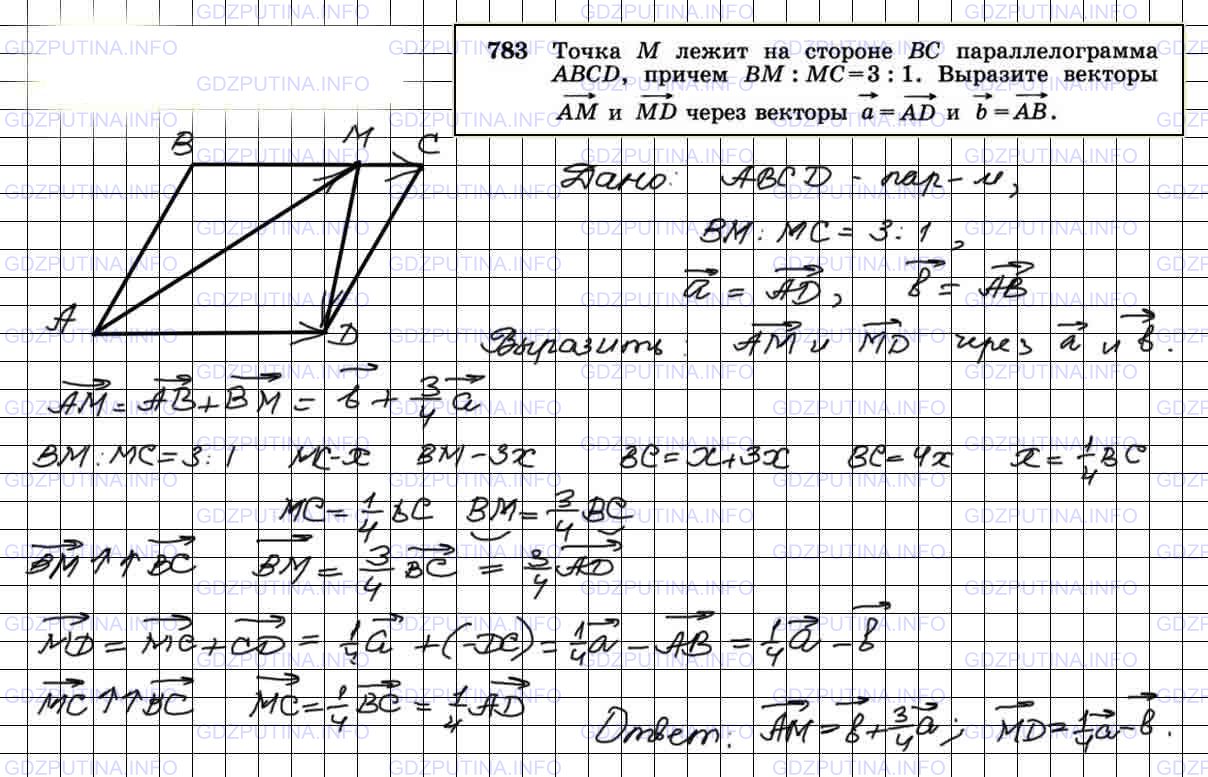 783 Точка M лежит на стороне BC параллелограмма
ABCD, причем BM : MC = 3 : 1. Выразите векторы
AM⃗ и MD⃗ через векторы a⃗ = AD⃗ и b⃗ = AB⃗.
B M C
A D
Дано: ABCD - пар-м,
BM : MC = 3 : 1,
a⃗ = AD⃗, b⃗ = AB⃗
Выразить: AM⃗ и MD⃗ через a⃗ и b⃗.
AM⃗ = AB⃗ + BM⃗ = b⃗ + 3/4 a⃗
BM : MC = 3 : 1 MC - x BM - 3x BC = x + 3x BC = 4x x = 1/4 BC
MC = 1/4 BC BM = 3/4 BC
BM⃗ ↑↑ BC⃗ BM⃗ = 3/4 BC⃗ = 3/4 AD⃗
MD⃗ = MC⃗ + CD⃗ = 1/4 a⃗ + (-DC) = 1/4 a⃗ - AB⃗ = 1/4 a⃗ - b⃗
MC⃗ ↑↑ BC⃗ MC⃗ = 1/4 BC⃗ = 1/4 AD⃗
Ответ: AM⃗ = b⃗ + 3/4 a⃗; MD⃗ = 1/4 a⃗ - b⃗.
GDZPUTINA.INFO